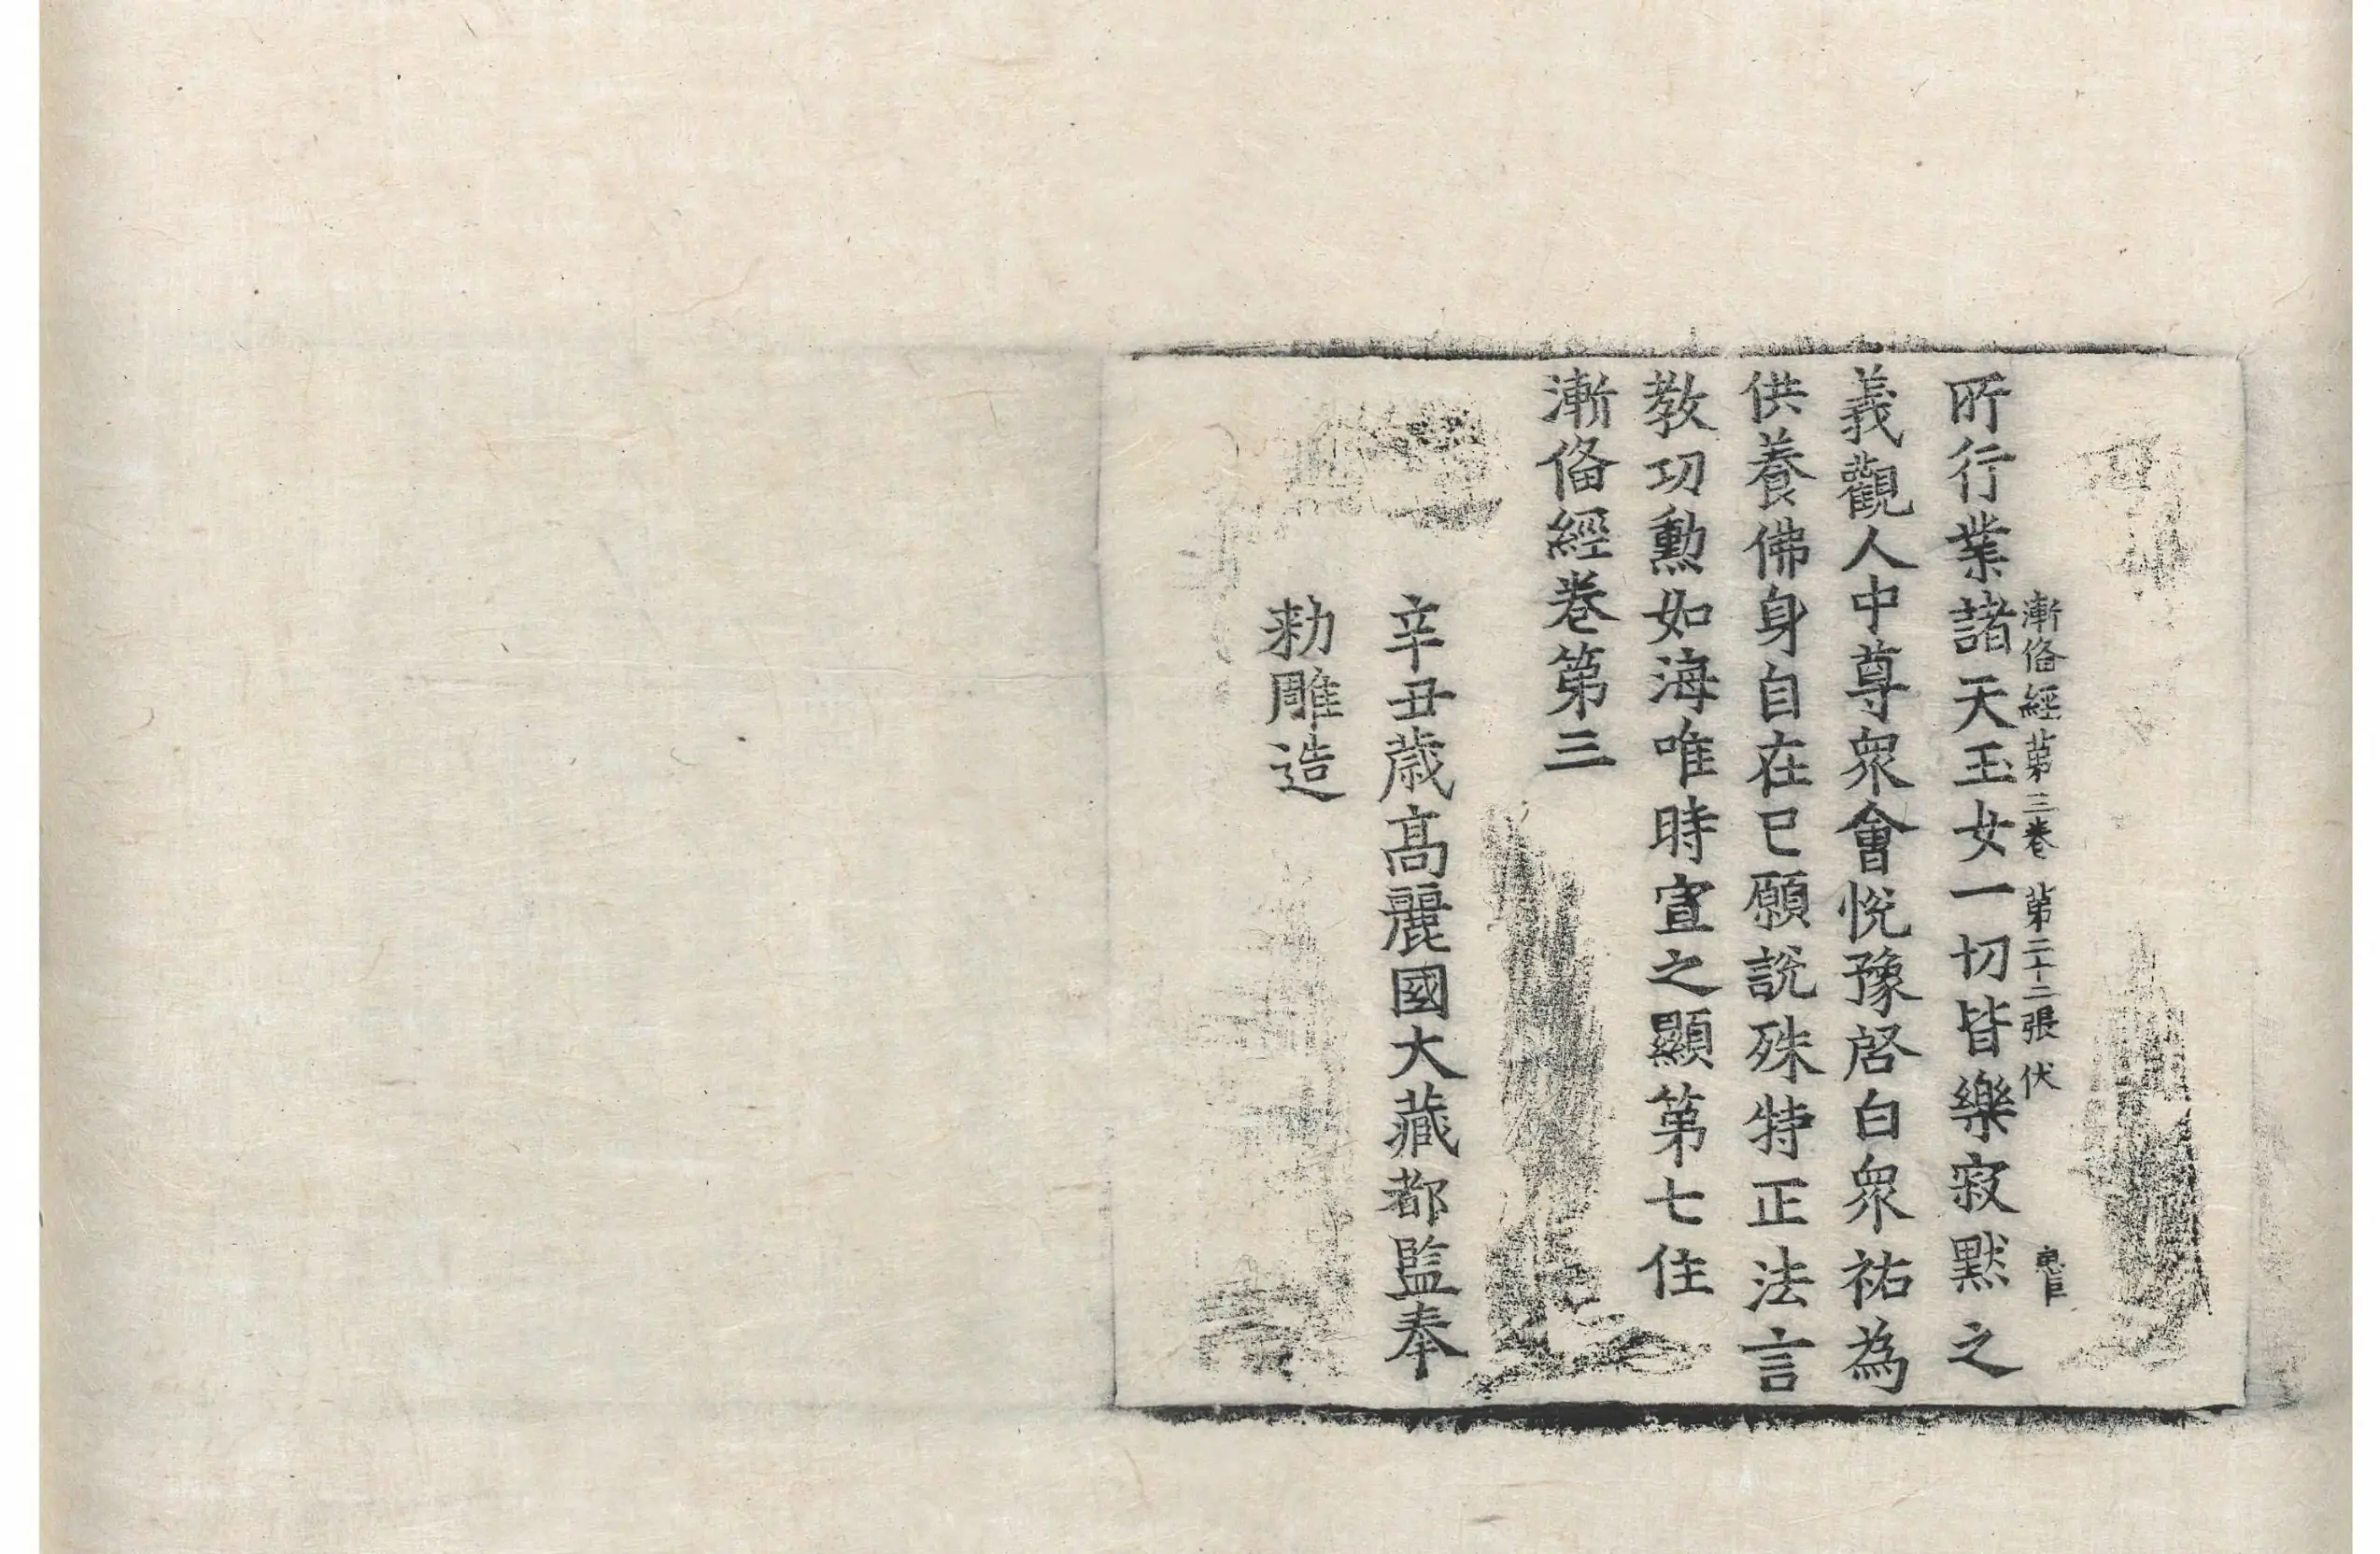 漸俻經第三卷 第二十二張 伏
所行業諸天玉女一切皆樂寂默之
義觀人中尊衆會悅豫啓白衆祐為
供養佛身自在已願說殊特正法言
教功勲如海唯時宣之顯第七住
漸俻經卷第三
辛丑歳髙麗國大藏都監奉
勑雕造